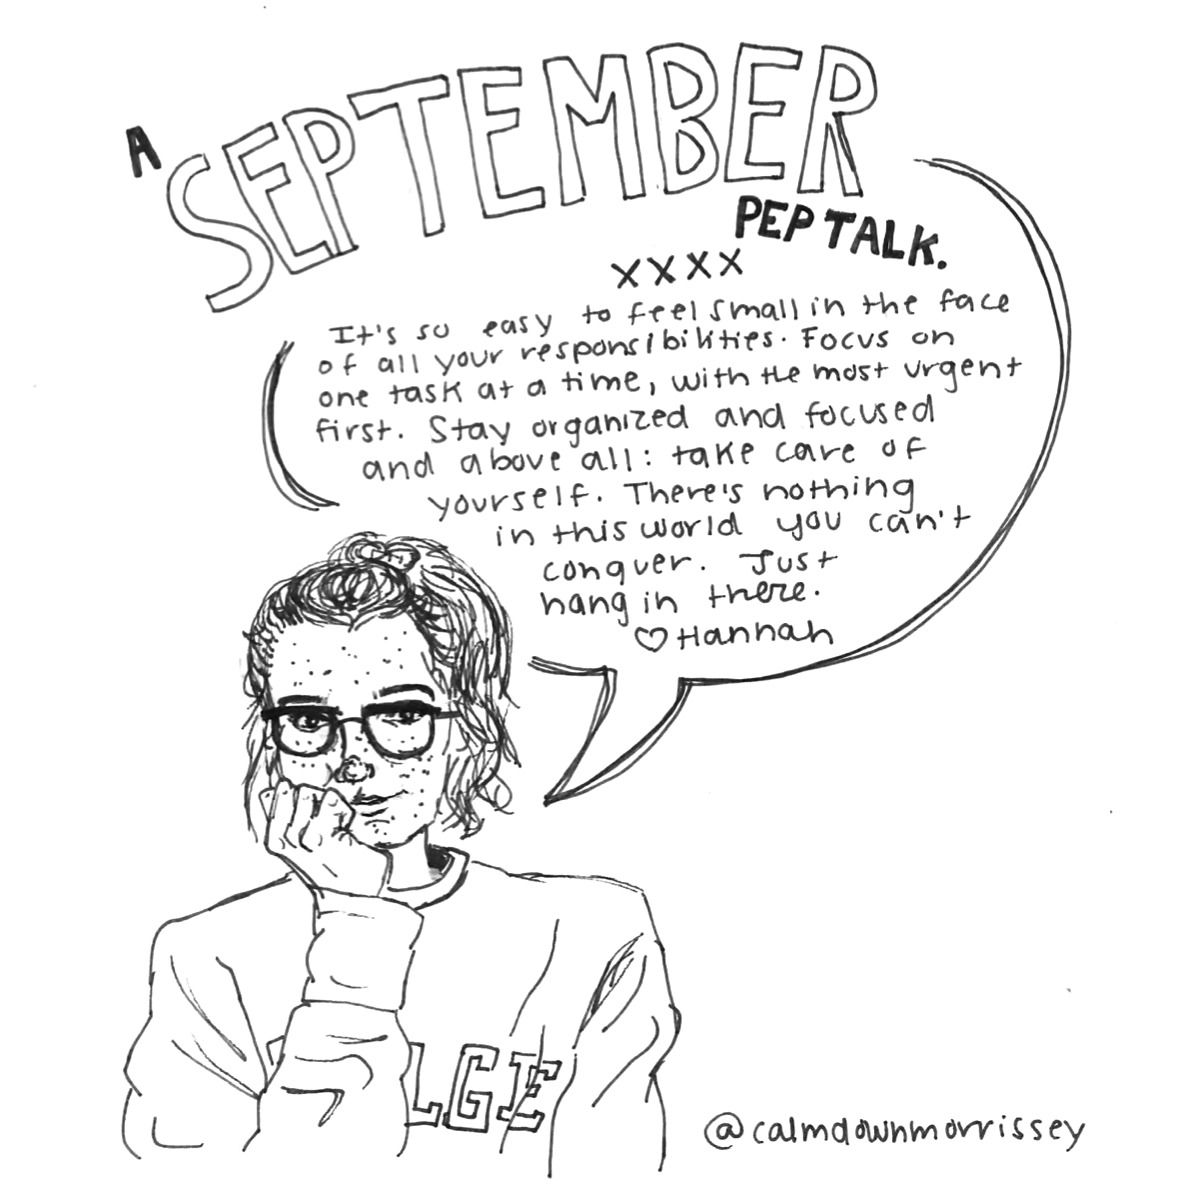 A SEPTEMBER
PEP TALK.
XXXX
It's so easy to feel small in the face
of all your responsibilities. Focus on
one task at a time, with the most urgent
first. Stay organized and focused
and above all: take care of
yourself. There's nothing
in this world you can't
conquer. Just
hang in there.
♡ Hannah
LGE
@calmdownmorrissey